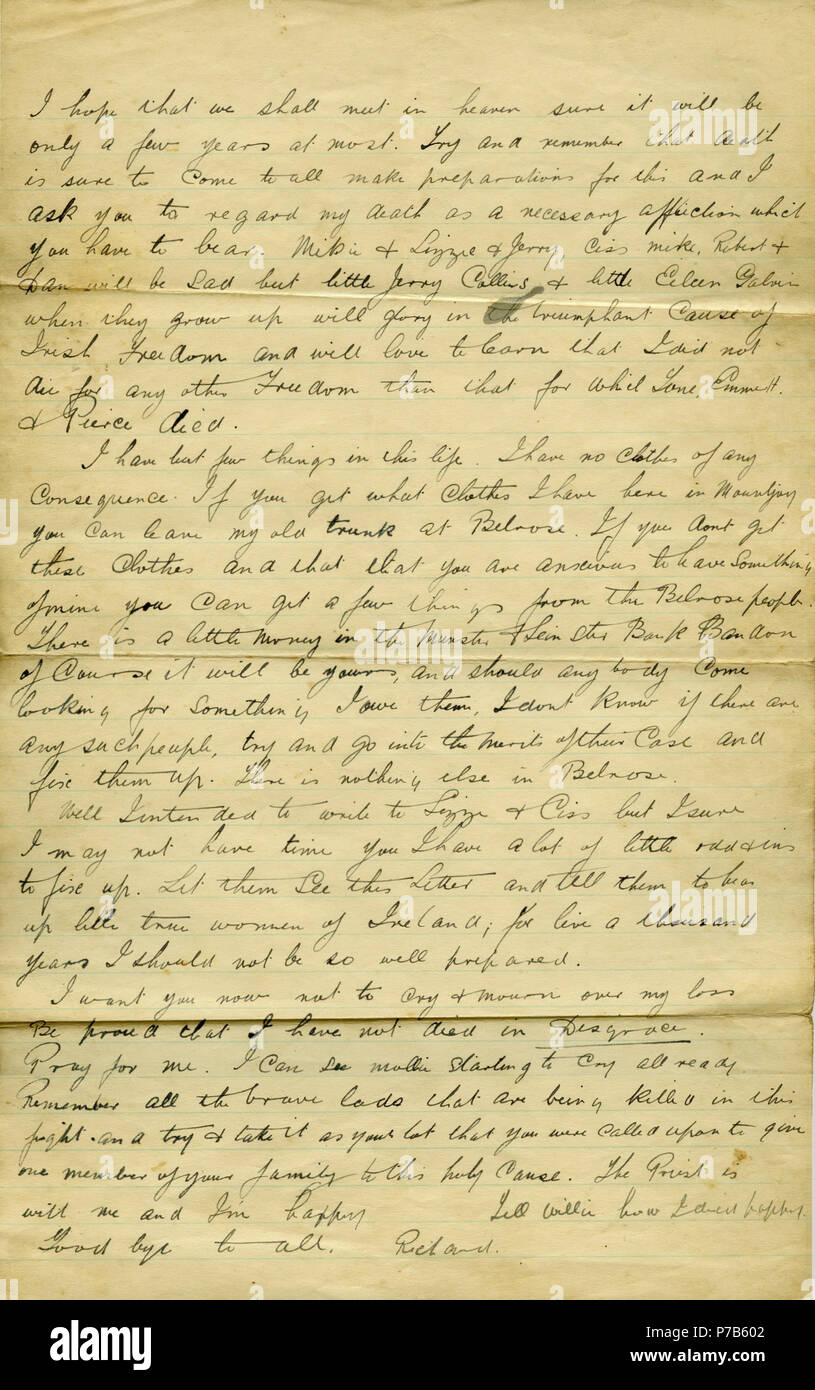 I hope that we shall meet in heaven sure it will be
only a few years at most. Try and remember that death
is sure to come to all make preparations for this and I
ask you to regard my death as a necessary affliction which
you have to bear. Mikie & Lizzie & Jerry, Ciss mike, Robert &
Dan will be sad but little Jerry Collins & little Eileen Galvin
when they grow up will glory in the triumphant Cause of
Irish Freedom and will love to learn that I did not
die for any other Freedom than that for which Tone, Emmett.
& Pierce died.
I have but few things in this life. I have no clothes of any
Consequence. If you get what clothes I have here in Mountjoy
you can leave my old trunk at Belrose. If you dont get
these clothes and that that you are anxious to have something
of mine you can get a few things from the Belrose people.
There is a little money in the Munster & Leinster Bank Bandon
of Course it will be yours, and should any body come
looking for something I owe them, I dont know if there are
any such people, try and go into the merits of their case and
fix them up. There is nothing else in Belrose.
Well I intended to write to Lizzie & Ciss but I sure
I may not have time you I have a lot of little odd & ins
to fix up. Let them see this letter and tell them to bear
up like true women of Ireland; for live a thousand
years I should not be so well prepared.
I want you now not to cry & mourn over my loss
Be proud that I have not died in Disgrace.
Pray for me. I can see mollie starting to cry all ready
Remember all the brave lads that are being killed in this
fight. and try & take it as your lot that you were called upon to give
one member of your family to this holy cause. The Priest is
with me and I'm happy Tell Willie how I died happy.
Good bye to all. Richard.
alamy
Image ID: P7B602
www.alamy.com